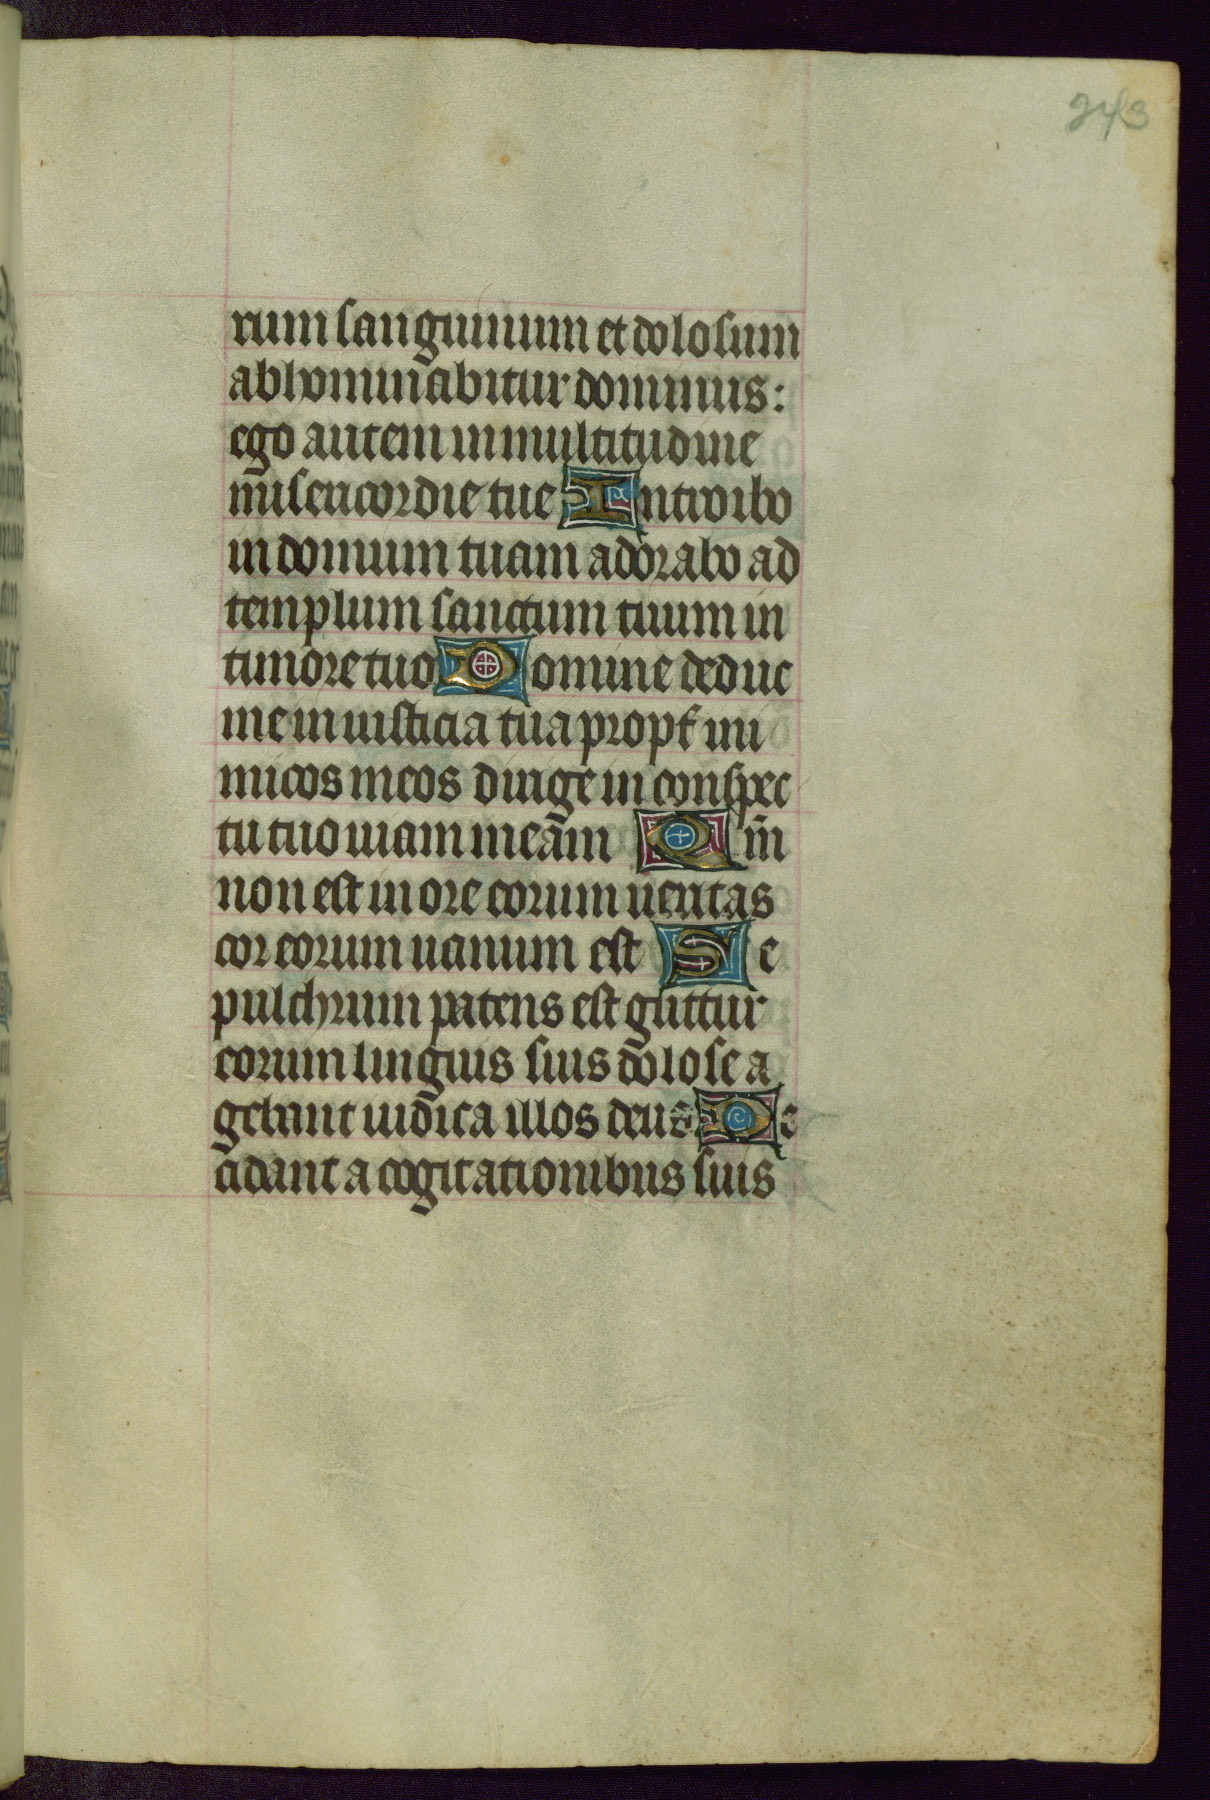 243
rum sanguinum et dolosum
abhominabitur dominus:
ego autem in multitudine
misericordie tue Introibo
in domum tuam adorabo ad
templum sanctum tuum in
timore tuo Domine deduc
me in iusticia tua propt̄ ini
micos meos dirige in conspec
tu tuo uiam meam Qm̄
non est in ore eorum ueritas
cor eorum uanum est Se
pulchrum patens est guttur
eorum linguis suis dolose a
gebant iudica illos deus De
cidant a cogitationibus suis